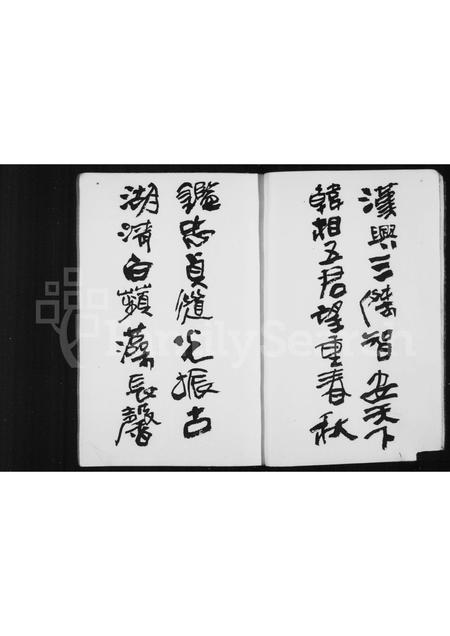 漢興三傑智安天下
韓相五君望重春秋
鑑忠貞儀光振古
湖清白蘋藻長馨
FamilySearch